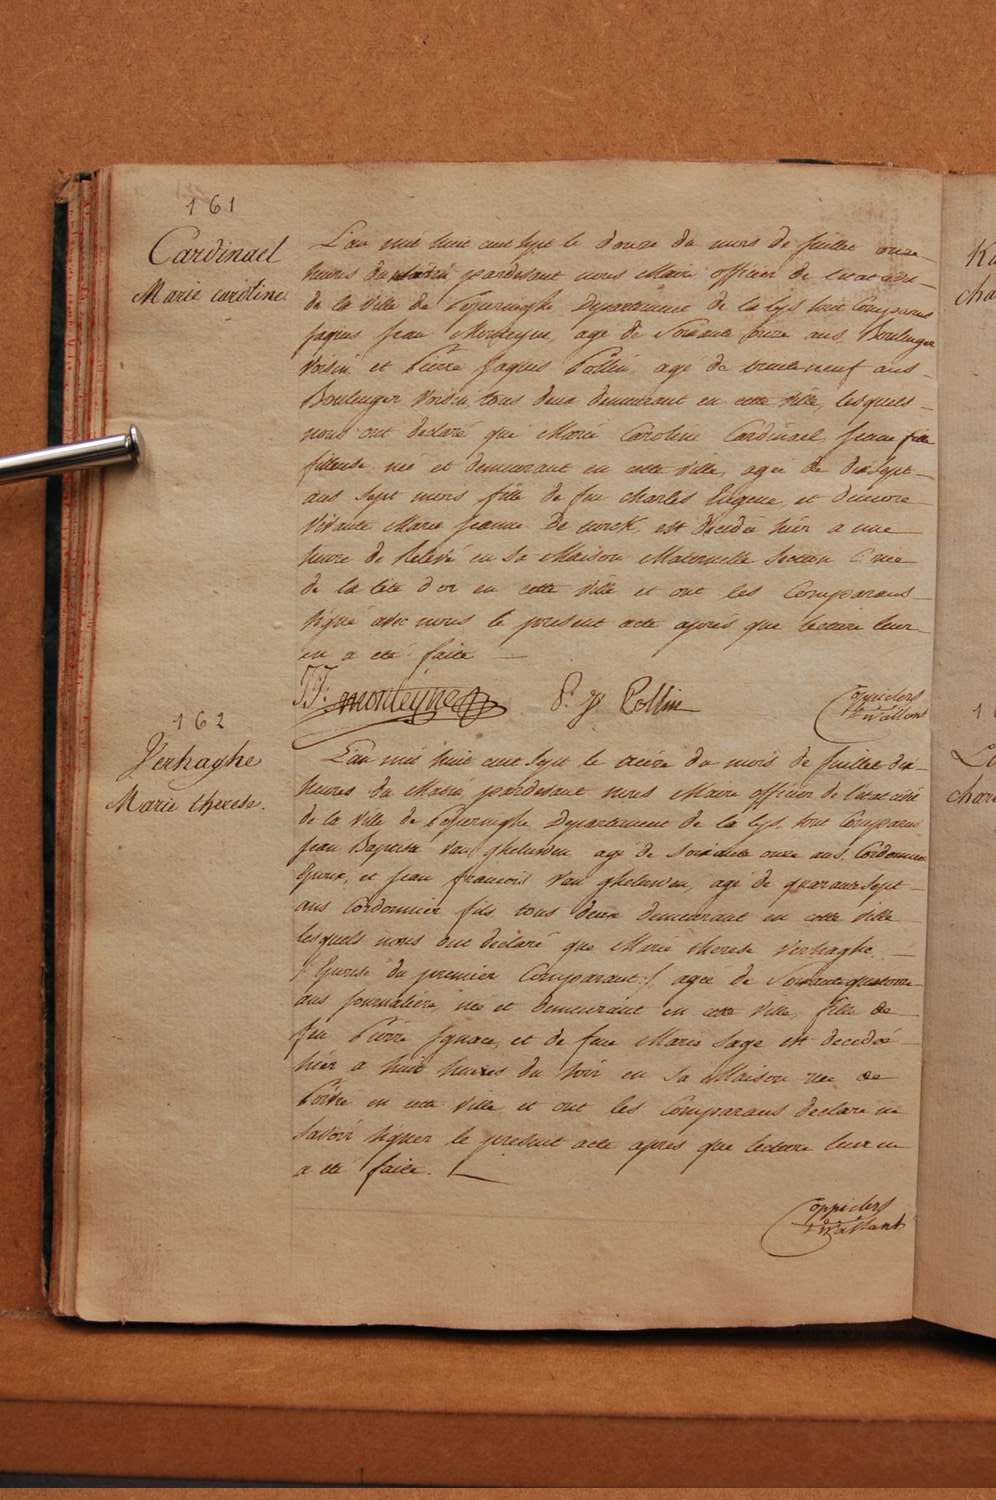 161
Cardinael
Marie caroline
L'an mil huit cent sept le douze du mois de Juillet onze
heures du matin pardevant nous Maire officier de l'etat civil
de la Ville de Poperinghe Departement de la Lys, sont Comparus
Jaques Jean Monteyne, agé de Soixante onze ans, Boulenger
Voisin et Pierre Jaques Pollin, agé de trente neuf ans
Boulenger Voisin, tous deux demeurant en cette Ville, lesquels
nous ont declaré que Marie Caroline Cardinael, Jeune fille
fileuse, née et demeurant en cette Ville, agée de dixsept
ans sept mois fille de feu Charles Eugene, et d'encore
Vivante Marie Jeanne De Curck, est décédée hier a une
heure de Relevé en Sa Maison Maternelle Section C rue
de la tête d'or en cette Ville et ont les Comparans
Signé avec nous le présent acte après que lecture leur
en a eté faite
J J. monteyne P. J. Pollin
162
Verhaghe
Marie therese.
L'an mil huit cent Sept le treize du mois de Juillet dix
heures du Matin pardevant nous Maire officier de l'etat civil
de la Ville de Poperinghe Departement de la Lys. sont Comparus
Jean Baptiste Van gheluwen agé de Soixante onze ans, Cordonnier
Epoux, et Jean francois Van gheluwen, agé de quarante sept
ans Cordonnier fils tous deux demeurant en cette Ville
lesquels nous ont déclaré que Marie therese Verhaghe,
/: Epouse du premier Comparant :/ agée de Soixante quatorze
ans journaliere, née et demeurant en cette Ville, fille de
feu Pierre Ignace, et de feue Marie Sage est decedée
hier a huit heures du Soir en Sa Maison rue de
en cette Ville et ont les Comparans declaré ne
Savoir signer le présent acte après que lecture leur en
a été faite.